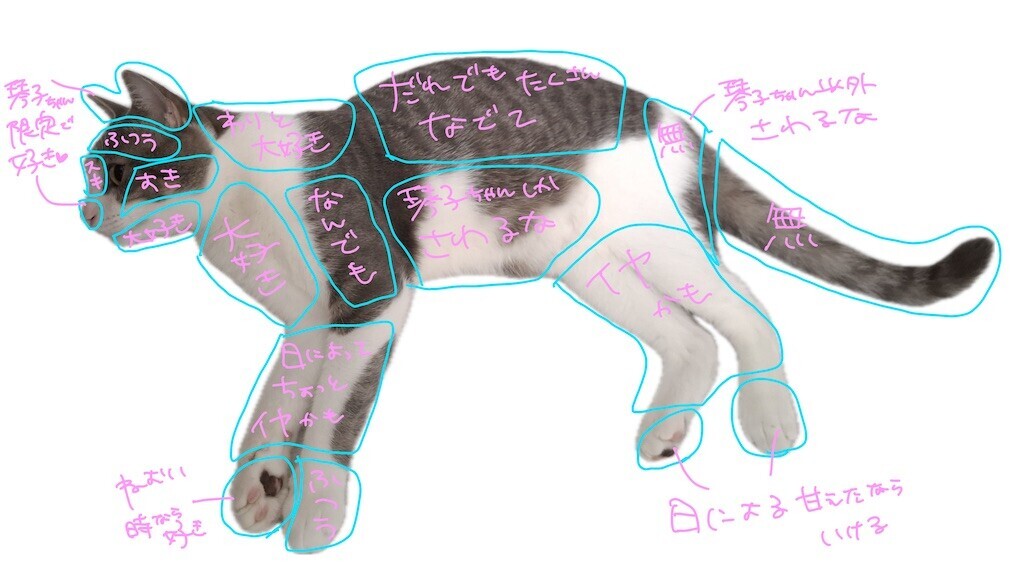 琴子ちゃん
限定で
好き♥
ふつう
スキ
すき
大好き
わりと
大好き
だれでもたくさん
なでて
琴子ちゃん以外
さわるな
無
無
大好き
なんでも
琴子ちゃんしか
さわるな
イヤ
かも
日によって
ちょっと
イヤかも
ねむい
時なら
好き
ふつう
日による 甘えたなら
いける